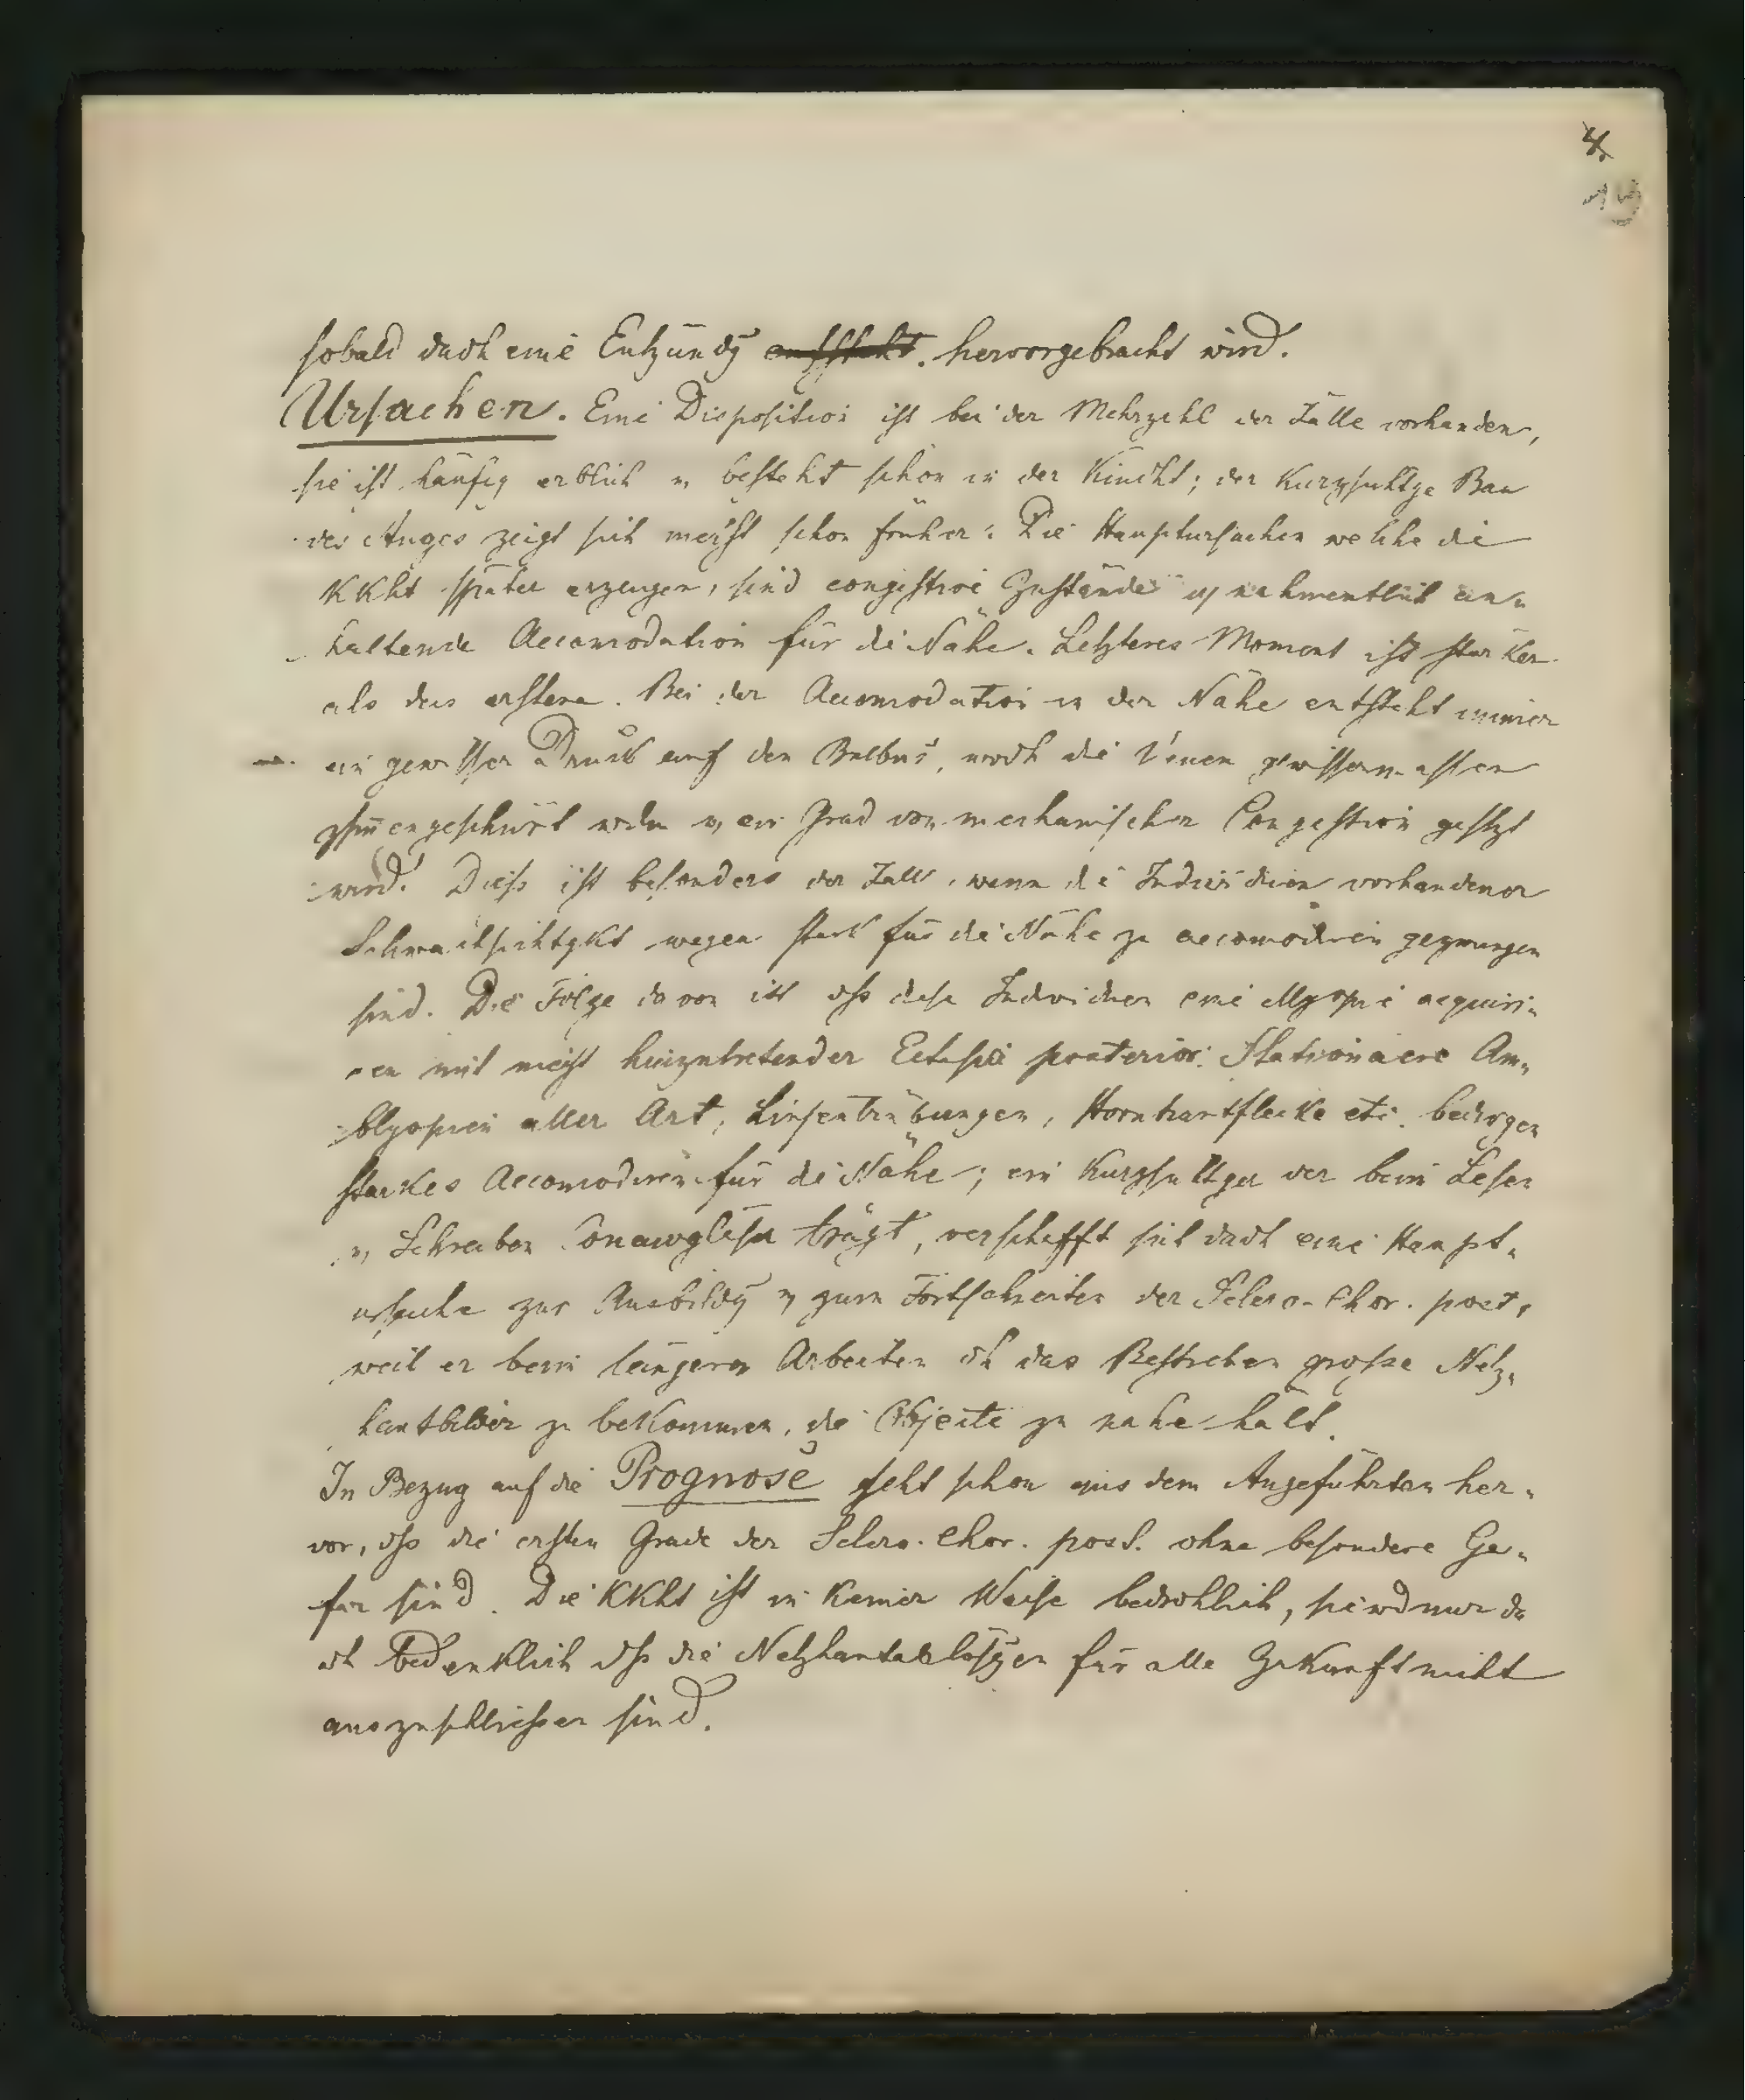 4.
19
sobald dadh eine Entzündg entsteht. hervorgebracht wird.
Ursachen. Eine Disposition ist bei der Mehrzahl der Fälle vorhanden,
sie ist häufig erblich u, besteht schon in der Kindht; der Kurzsichtge Bau
des Auges zeigt sich meist schon früher. Die Hauptursachen welche die
KKht später erzeugen, sind congestive Zustände u, nahmentlich an-
haltende Accomodation für die Nähe. Letzteres Moment ist stärker
als das erstere. Bei der Accomodation in der Nähe entsteht immer
ein gewisser Druck auf den Bulbus, wodh die Venen gewissermassen
zsm̄engeschnürt wrdn u, ein Grad von mechanischer Congestion gesetzt
wird. Diess ist besonders der Fall, wenn die Individuen vorhandener
Schwachsichtgkt wegen stark für die Nähe zu accomodiren gezwungen
sind. Die Folge davon ist dss diese Individuen eine Myopie acquiri-
ren mit meist hinzutretender Ectasia posterior. Stationaere Am-
blyopien aller Art, Linsentrübungen, Hornhautflecke etc. bedingen
starkes Accomodiren für die Nähe; ein Kurzsichtger der beim Lesen
u, Schreiben Concavgläser trägt, verschafft sich dadh eine Haupt-
ursache zur Ausbildg u, zum Fortschreiten der Sclero-Chor. post,
weil er beim längern Arbeiten dh das Bestreben grosse Netz-
hautbilder zu bekommen, die Objecte zu nahe hält.
In Bezug auf die Prognose geht schon aus dem Angeführten her-
vor, dss die ersten Grade der Sclero. Chor. post. ohne besondere Ge-
far sind. Die KKht ist in keiner Weise bedrohlich, sie wd nur da
dh bedenklich dss die Netzhautablösgen für alle Zukunft nicht
auszuschliessen sind.